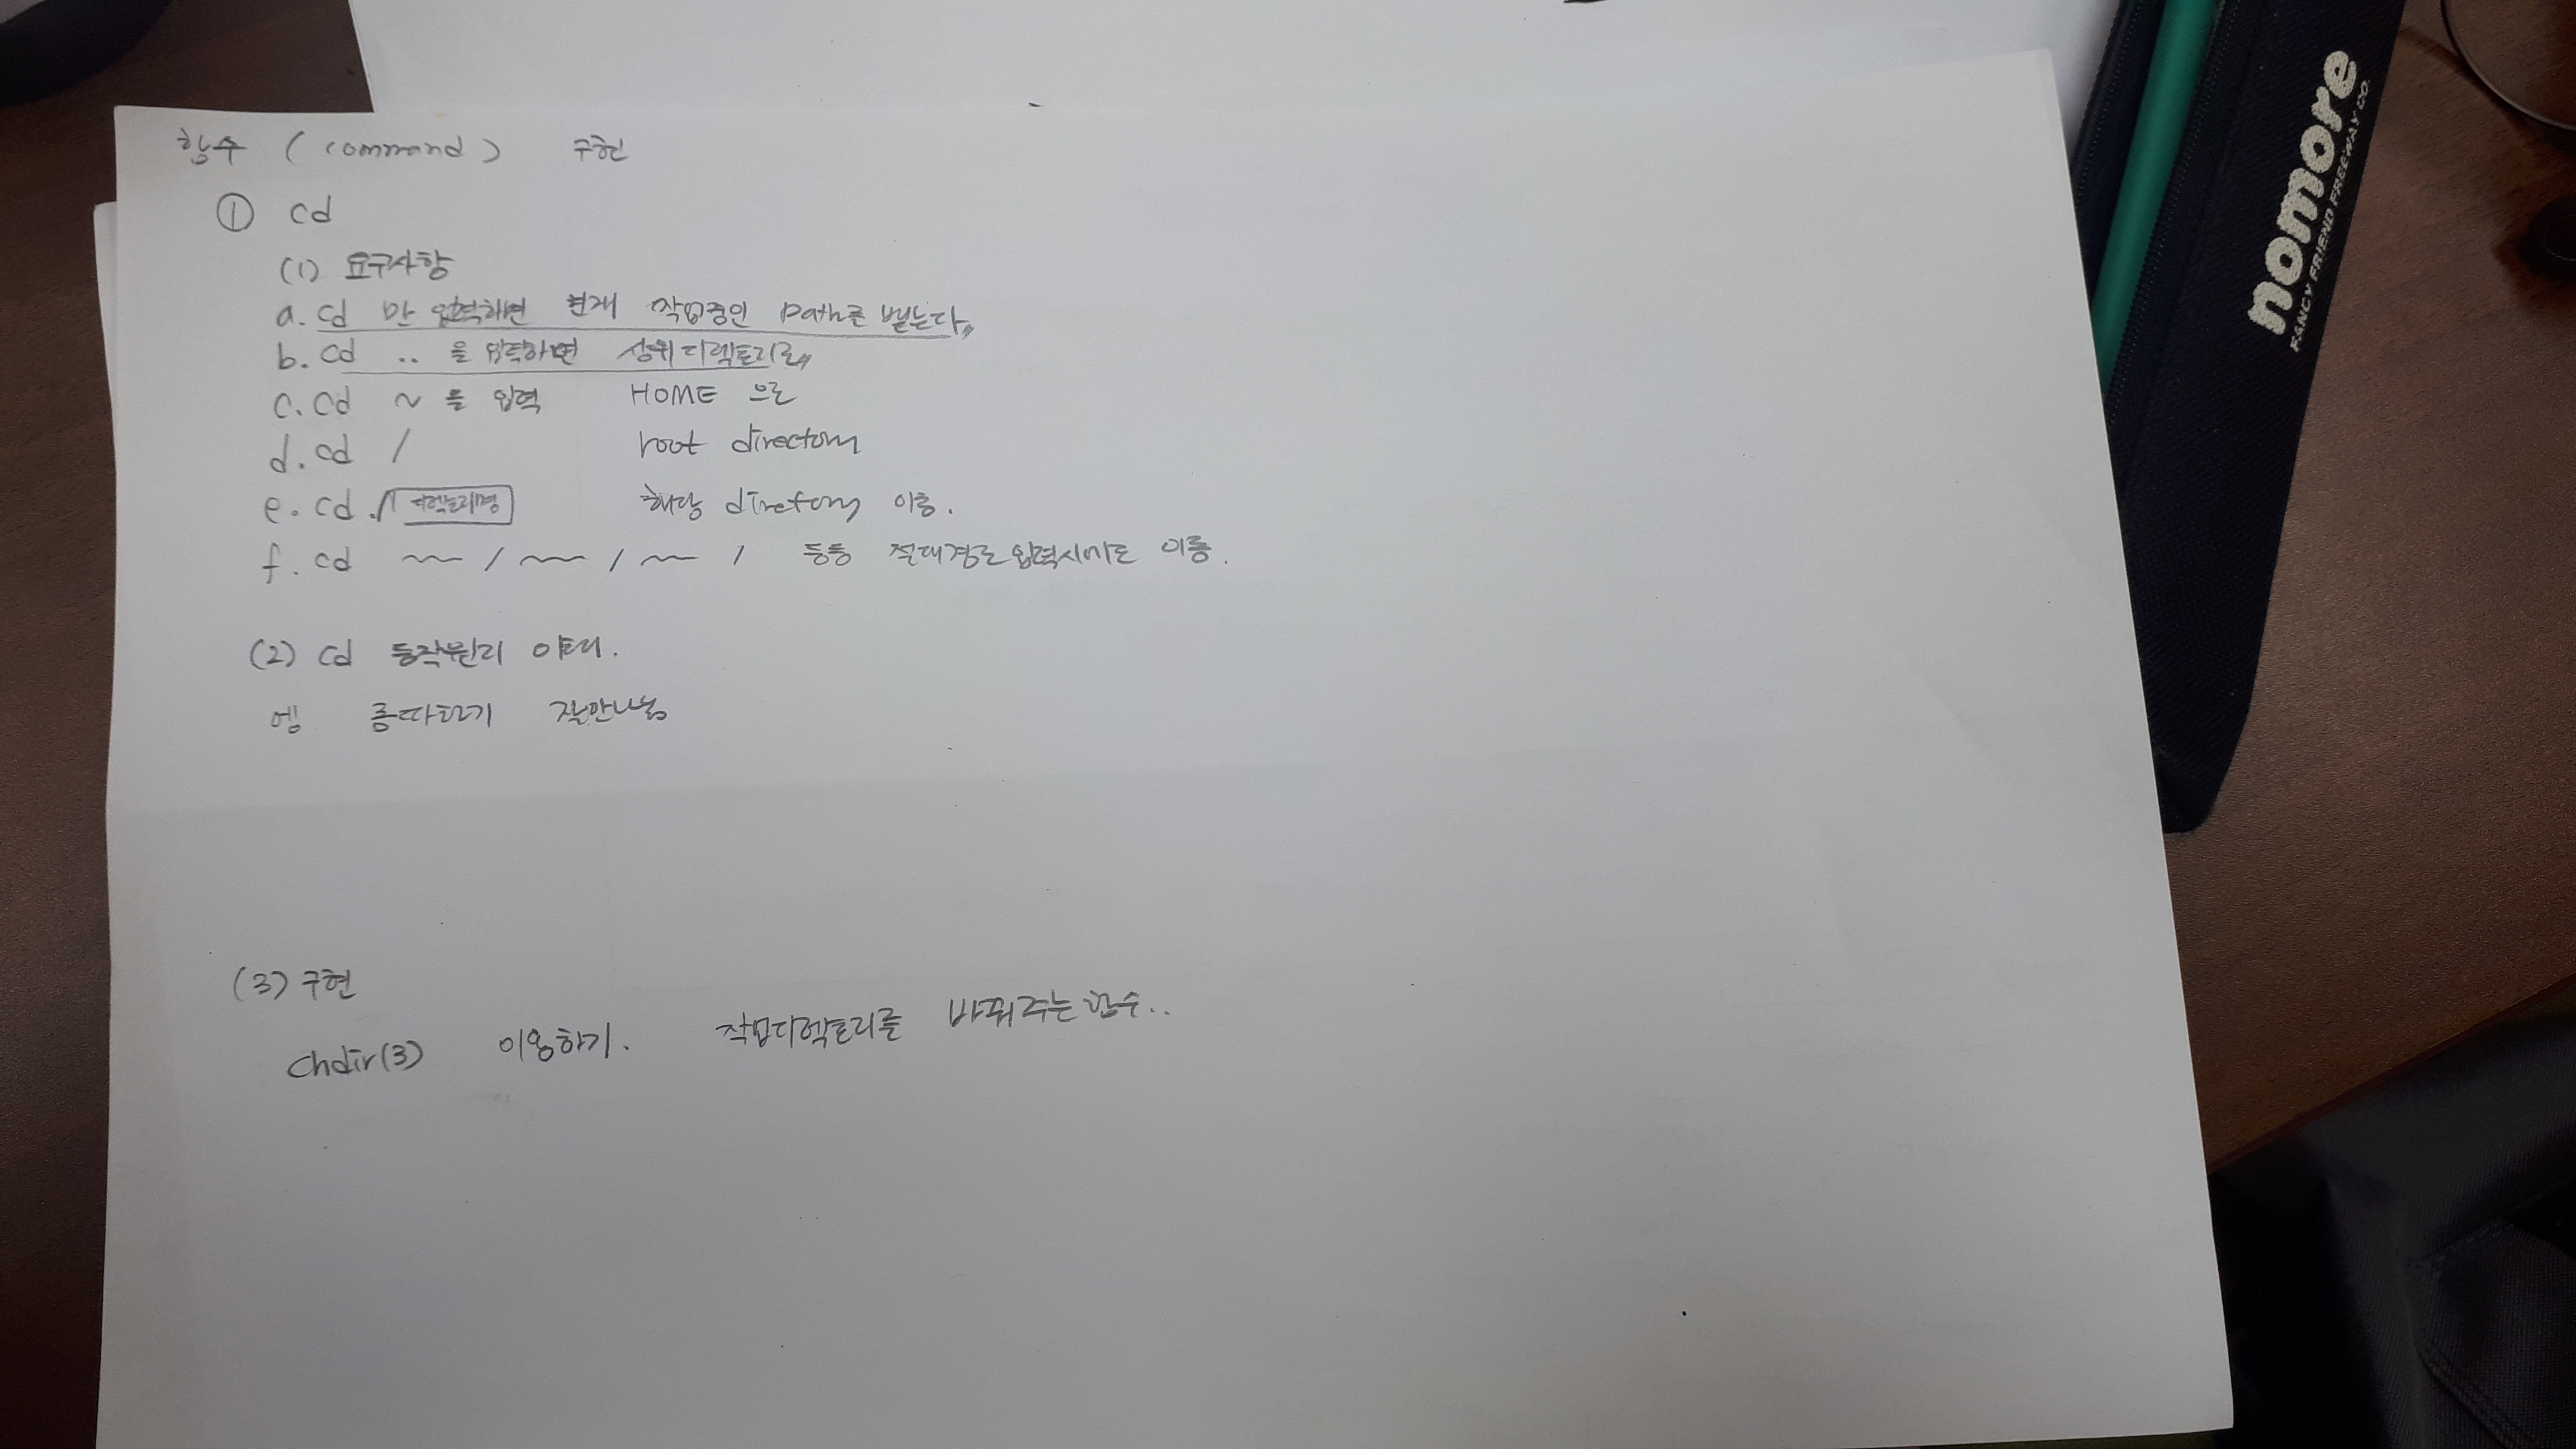 명령 (command) 구현
① cd
(1) 요구사항
a. cd 만 입력하면 현재 작업중인 path를 보여준다
b. cd .. 을 입력하면 상위디렉토리로
c. cd ~ 를 입력 HOME 으로
d. cd / root directory
e. cd ./ 폴더이름 하위 directory 이동.
f. cd ~/~/~/ 등등 직접경로 입력시 바로 이동.
(2) cd 동작원리 이해.
(3) 구현
chdir(3) 이용하기. 작업디렉토리를 바꿔주는 함수..
nomore
FANCY FRIEND FREEWAY CO.